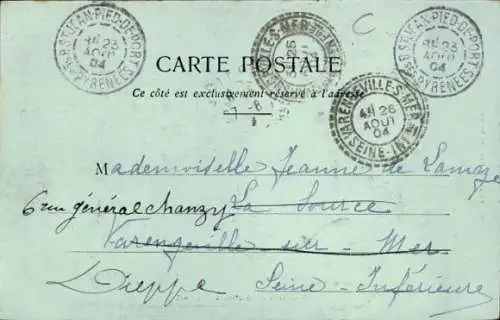 ST JEAN-PIED-DE-PORT
23
AOUT
04
BSES PYRENEES
VARENGEVILLE-S-MER
AOUT
04
ST JEAN-PIED-DE-PORT
23
AOUT
04
BSES PYRENEES
CARTE POSTALE
Ce côté est exclusivement réservé à l'adresse
VARENGEVILLE-S-MER
26
AOUT
04
SEINE-INFRE
Mademoiselle Jeanne de
6 rue général Chanzy La Source
Varengeville sur - Mer
Dieppe Seine - Inférieure